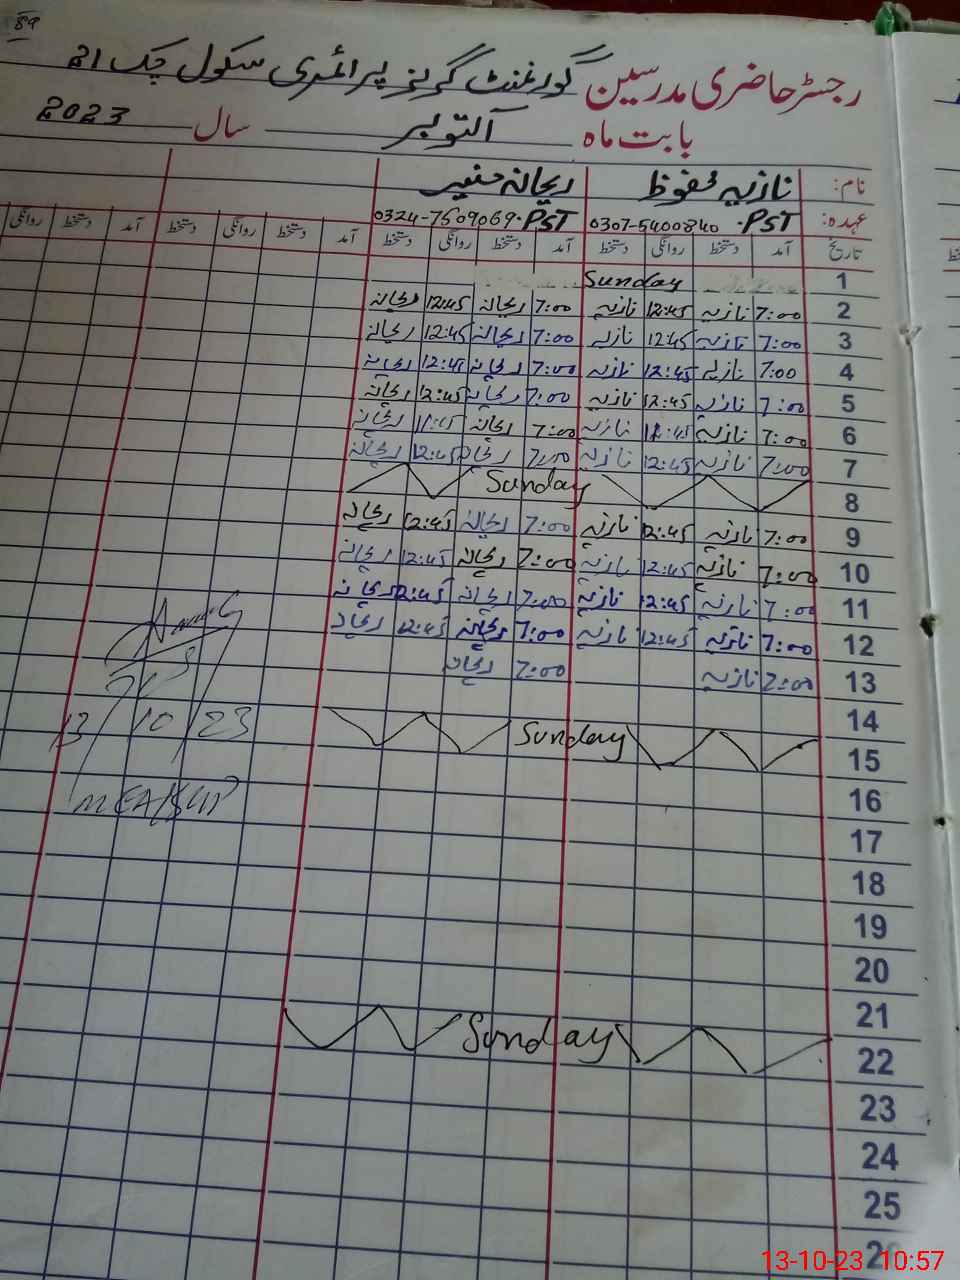 89
رجسٹر حاضری مدرسین گورنمنٹ گرلز پرائمری سکول چک 21
بابت ماہ اکتوبر سال 2023
نام: نازیہ محفوظ ریحانہ منیر
عہدہ: PST 0307-5400840 PST 0324-7509069
تاریخ آمد دستخط روانگی دستخط آمد دستخط روانگی دستخط آمد دستخط روانگی دستخط آمد دستخط روانگی
1 Sunday
2 7:00 نازیہ 12:45 نازیہ 7:00 ریحانہ 12:45 ریحانہ
3 7:00 نازیہ 12:45 نازیہ 7:00 ریحانہ 12:45 ریحانہ
4 7:00 نازیہ 12:45 نازیہ 7:00 ریحانہ 12:45 ریحانہ
5 7:00 نازیہ 12:45 نازیہ 7:00 ریحانہ 12:45 ریحانہ
6 7:00 نازیہ نازیہ 7:00 ریحانہ 11:45 ریحانہ
7 7:00 نازیہ 12:45 نازیہ 7:00 ریحانہ 12:45 ریحانہ
8 Sunday
9 7:00 نازیہ 12:45 نازیہ 7:00 ریحانہ 12:45 ریحانہ
10 7:00 نازیہ 12:45 نازیہ 7:00 ریحانہ 12:45 ریحانہ
11 7:00 نازیہ 12:45 نازیہ 7:00 ریحانہ 12:45 ریحانہ
12 7:00 نازیہ 12:45 نازیہ 7:00 ریحانہ 12:45 ریحانہ
13 7:00 نازیہ 7:00 ریحانہ
14
15 Sunday
13/10/23
16
17
18
19
20
21
22 Sunday
23
24
25
26
13-10-23 10:57